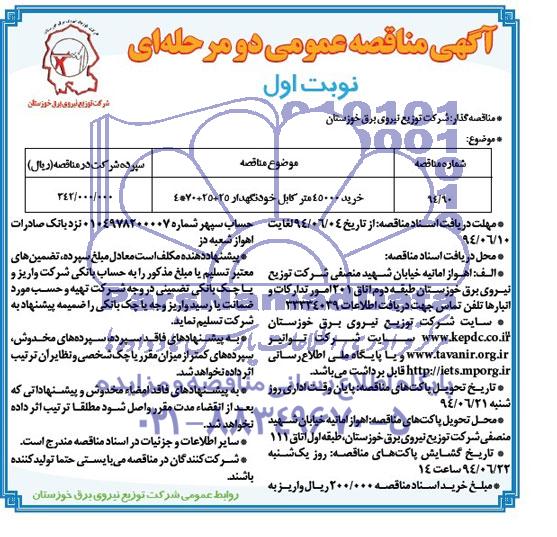 آگهی مناقصه عمومی دو مرحله‌ای
نوبت اول
شرکت توزیع نیروی برق خوزستان
* مناقصه گذار: شرکت توزیع نیروی برق خوزستان
* موضوع:
شماره مناقصه
موضوع مناقصه
سپرده شرکت در مناقصه (ریال)
۹۴/۶۰
خرید ۴۵۰۰۰ متر کابل خودنگهدار ۲۵+۲۵+۷۰*۴
۳۴۲/۰۰۰/۰۰۰
* مهلت دریافت اسناد مناقصه: از تاریخ ۹۴/۰۶/۰۴ لغایت
۹۴/۰۶/۱۰
* محل دریافت اسناد مناقصه:
الف: اهواز امانیه خیابان شهید منصفی شرکت توزیع
نیروی برق خوزستان طبقه دوم اتاق ۲۰۱ امور تدارکات و
انبارها تلفن تماس جهت دریافت اطلاعات ۳۳۳۳۴۰۳۹
* سایت شرکت توزیع نیروی برق خوزستان
www.kepdc.co.ir و سایت شرکت توانیر
www.tavanir.org.ir و یا پایگاه ملی اطلاع رسانی
http://iets.mporg.ir قابل برداشت می‌باشد.
* تاریخ تحویل پاکت‌های مناقصه: پایان وقت اداری روز
شنبه ۹۴/۰۶/۲۱
* محل تحویل پاکت‌های مناقصه: اهواز امانیه خیابان شهید
منصفی شرکت توزیع نیروی برق خوزستان، طبقه اول اتاق ۱۱۱
* تاریخ گشایش پاکت‌های مناقصه: روز یک‌شنبه
۹۴/۰۶/۲۲ ساعت ۱۴
* مبلغ خرید اسناد مناقصه ۲۰۰/۰۰۰ ریال واریز به
حساب سپهر شماره ۰۱۰۴۹۷۸۲۰۰۰۰۷ نزد بانک صادرات
اهواز شعبه دز
* پیشنهاد دهنده مکلف است معادل مبلغ سپرده، تضمین‌های
معتبر تسلیم یا مبلغ مذکور را به حساب بانکی شرکت واریز و
یا چک بانکی تضمینی در وجه شرکت تهیه و حسب مورد
ضمانت یا رسید واریز وجه یا چک بانکی را ضمیمه پیشنهاد به
شرکت تسلیم نماید.
* به پیشنهادهای فاقد سپرده، سپرده‌های مخدوش،
سپرده‌های کمتر از میزان مقرر یا چک شخصی و نظایر آن ترتیب
اثر داده نخواهد شد.
* به پیشنهادهای فاقد امضاء مخدوش و پیشنهاداتی که
بعد از انقضاء مدت مقرر واصل شود مطلقا ترتیب اثر داده
نخواهد شد.
* سایر اطلاعات و جزئیات در اسناد مناقصه مندرج است.
* شرکت کنندگان در مناقصه می‌بایستی حتما تولیدکننده
باشند.
روابط عمومی شرکت توزیع نیروی برق خوزستان
ParsNamadData
پایگاه اطلاع رسانی مناقصه و مزایده
۰۲۱-۸۸۳۴۹۶۷۰-۵